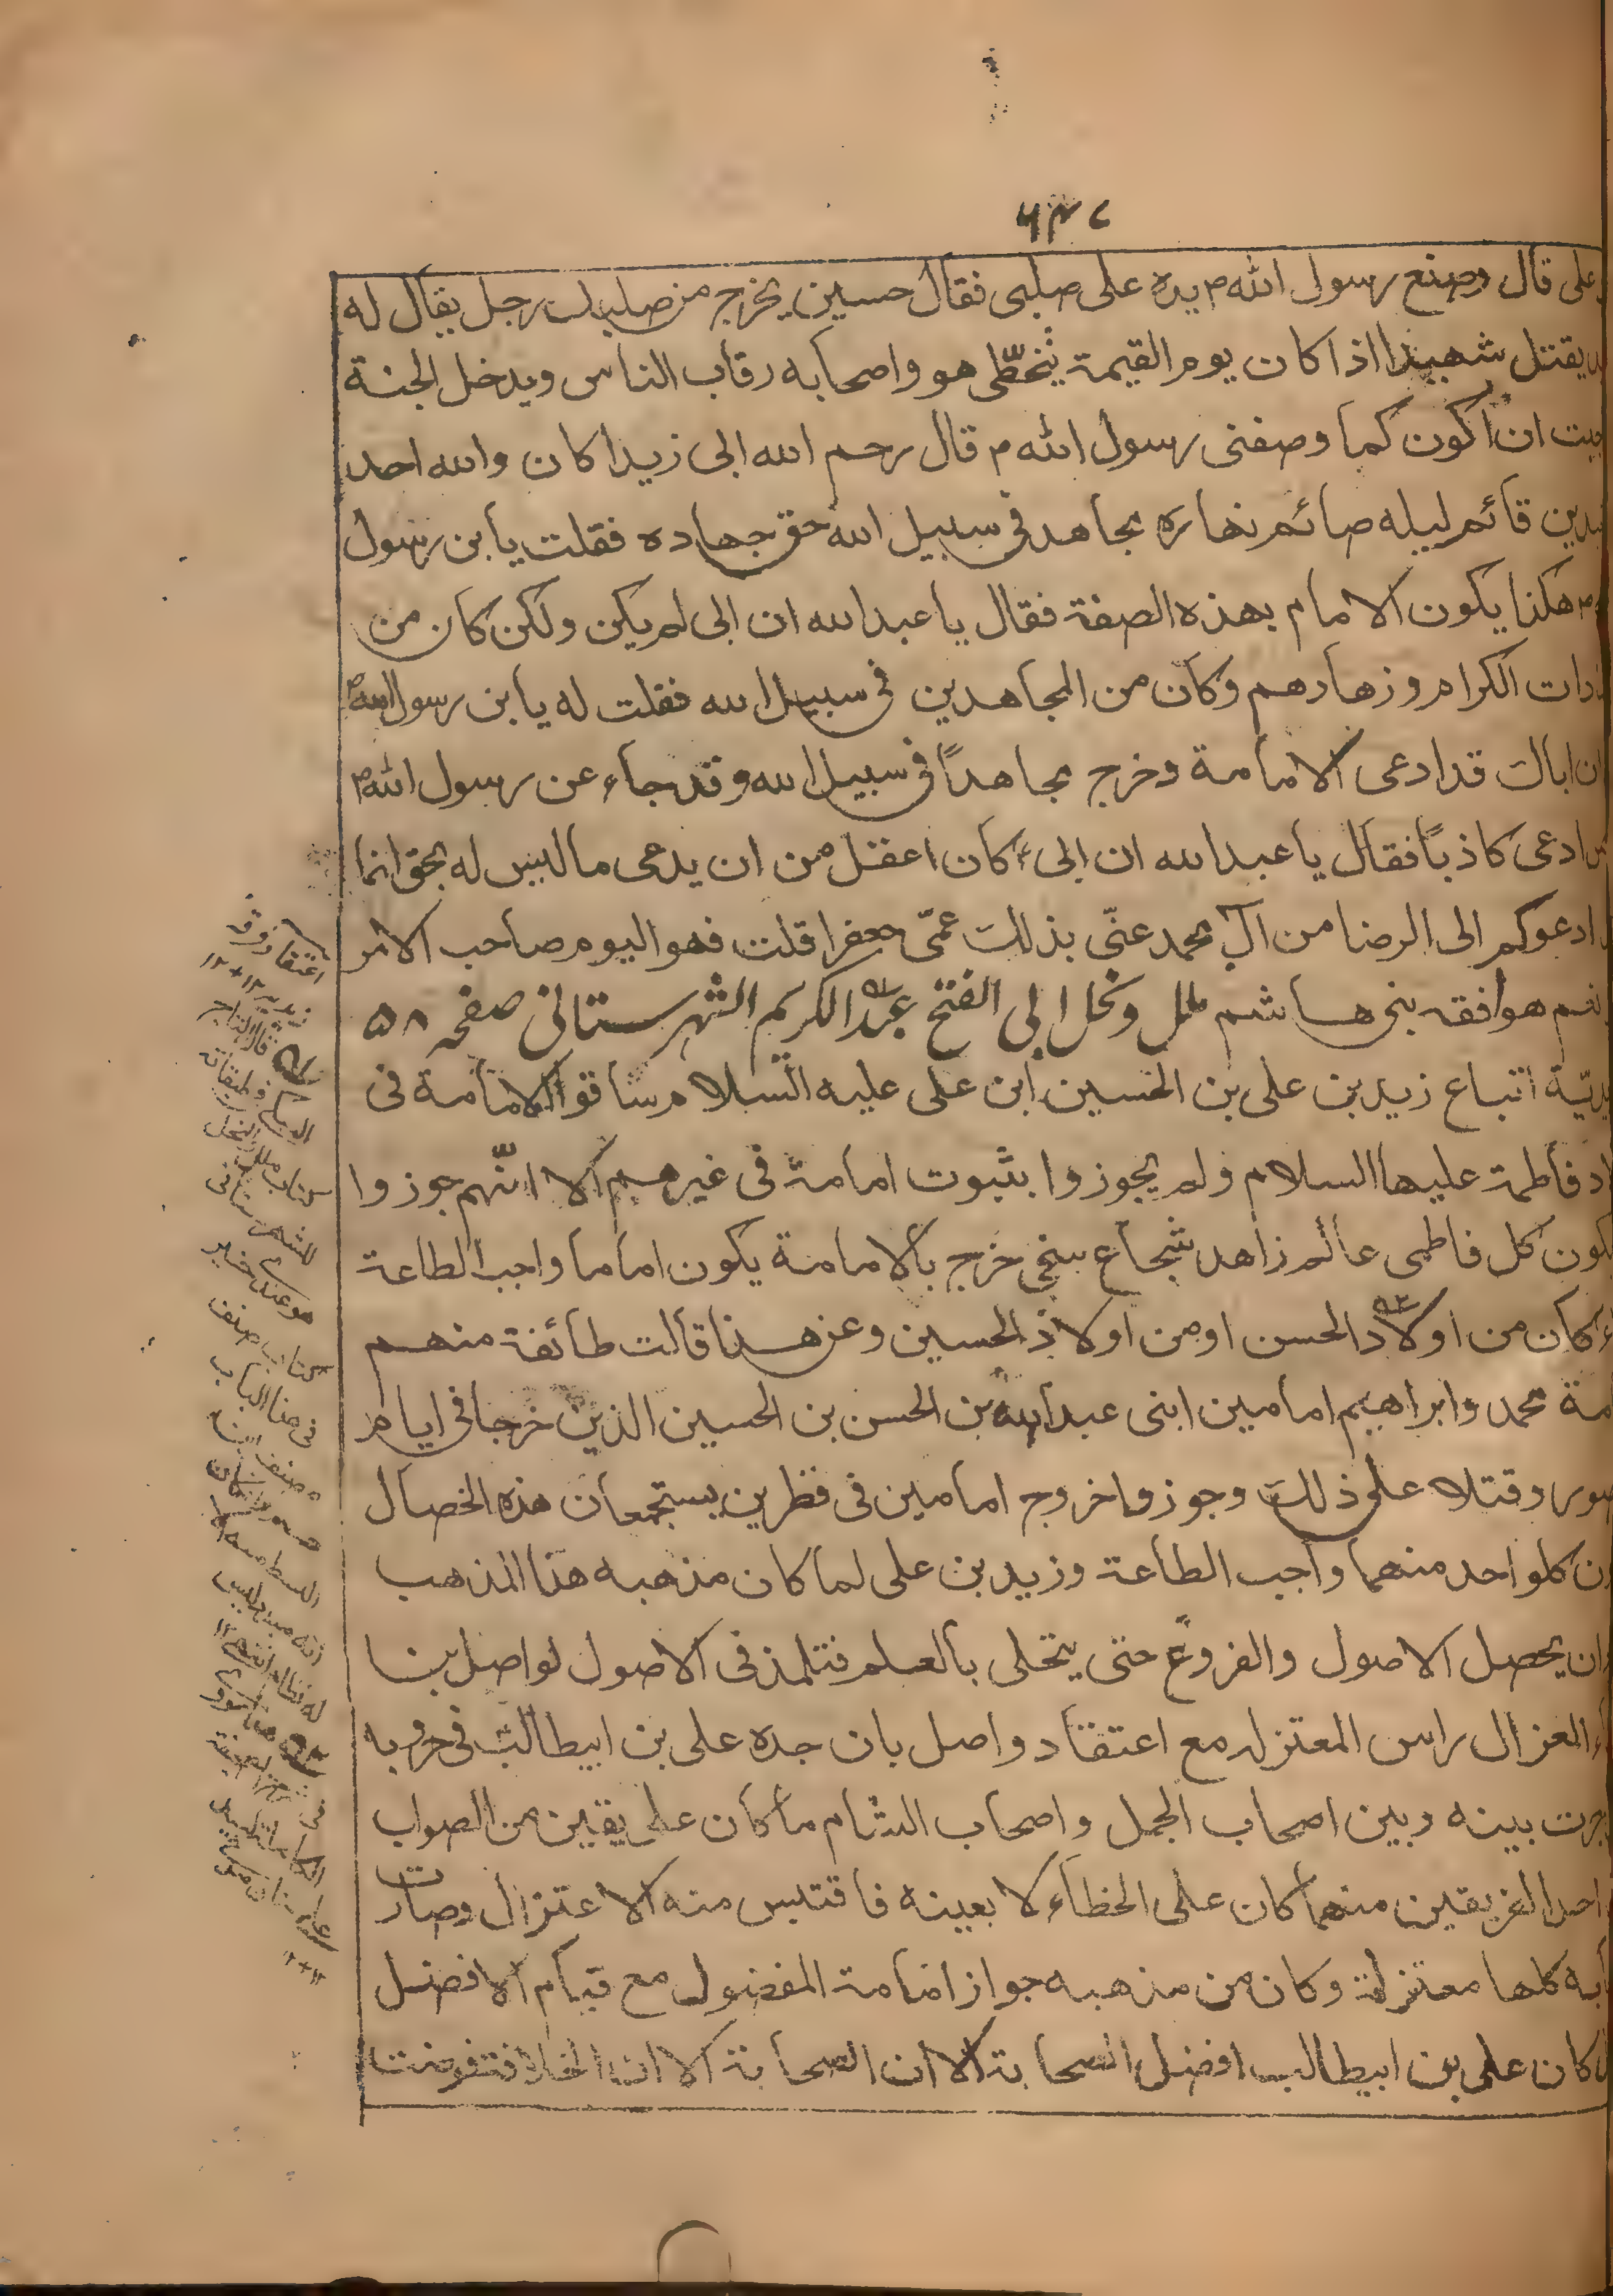 على قال وضع رسول الله م يده على صلبى فقال حسين يخرج من صلبك رجل يقال له
يقتل شهيدا اذا كان يوم القيمة يتخطّى هو واصحابه رقاب الناس ويدخل الجنة
ان اكون كما وصفنى رسول الله م قال رحم الله ابى زيدا كان والله احد
قائم ليله صائم نهاره مجاهد فى سبيل الله حق جهاده فقلت يا بن رسول
هكذا يكون الامام بهذه الصفة فقال يا عبد الله ان ابى لم يكن ولكن كان من
دات الكرام وزهادهم وكان من المجاهدين فى سبيل الله فقلت له يا بن رسول الله م
ان اباك قد ادعى الامامة وخرج مجاهدًا فى سبيل الله وقد جاء عن رسول الله م
ادعى كاذبًا فقال يا عبد الله ان ابى ء كان اعقل من ان يدعى ما ليس له بحق انما
ادعوكم الى الرضا من آل محمد عنّى بذلك عمّى جعفرا قلت فهو اليوم صاحب الامر
هو افقه بنى هاشم ملل ونحل ابى الفتح عبد الكريم الشهرستانى صفحه ٥٨
يديّة اتباع زيد بن على بن الحسين ابن على عليه السّلام ساقوا الامامة فى
اد فاطمة عليها السلام ولم يجوزوا بثبوت امامة فى غيرهم الا انّهم جوزوا
يكون كل فاطمى عالم زاهد شجاع سخى خرج بالامامة يكون اماما واجب الطاعة
ء كان من اولاد الحسن او من اولاد الحسين وعن هذا قالت طائفة منهم
مة محمد وابراهيم امامين ابنى عبد الله بن الحسن بن الحسين الذين خرجا فى ايام
صور وقتلا على ذلك وجوزوا خروج امامين فى قطرين يستجمعان هذه الخصال
ون كلواحد منهما واجب الطاعة وزيد بن على لما كان مذهبه هذا المذهب
ان يحصل الاصول والفروع حتى يتحلى بالعلم فتلمذ فى الاصول لواصل بن
ء الغزال راس المعتزلة مع اعتقاد واصل بان جده على بن ابيطالب فى حروبه
جرت بينه وبين اصحاب الجمل واصحاب الشام ما كان على يقين من الصواب
احد الفريقين منهما كان على الخطاء لا بعينه فاقتبس منه الاعتزال وصارت
ابه كلها معتزلة وكان من مذهبه جواز امامة المفضول مع قيام الافضل
كان على بن ابيطالب افضل الصحابة الا ان الصحابة الا ان الخلافة فوضت
كتاب ملل والنحل
للشهرستانى
هو عندى خير
كتاب صنف
فى هذا الباب